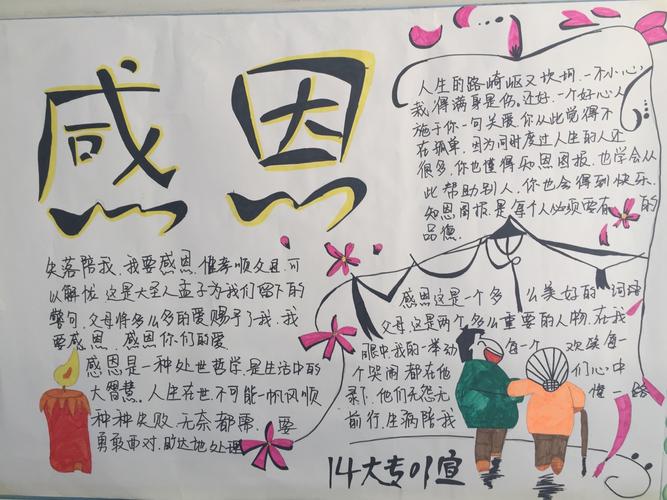 感恩
人生的路崎岖又坎坷,一不小心
栽得满身是伤,还好,一个好心人
施于你一句关爱,你从此觉得不
在孤单,因为同时度过人生的人还
很多,你也懂得知恩图报,也学会从
此帮助别人,你也会得到快乐.
知恩图报,是每个人必须要有的
品德.
失落陪我,我要感恩,惟孝顺父母,可
以解忧,这是大圣人孟子为我们留下的
警句,父母将多么多的爱赐予了我,我
要感恩,感恩你们的爱
感恩是一种处世哲学,是生活中的
大智慧,人生在世,不可能一帆风顺
种种失败,无奈都需要
勇敢面对,豁达地处理
感恩这是一个多么美好的词语
父母,这是两个多么重要的人物,在我
眼中,我的一举动每一个欢笑每一
个哭闹都在他们心中
他们无怨无
前行,生病陪我
14大专01宣